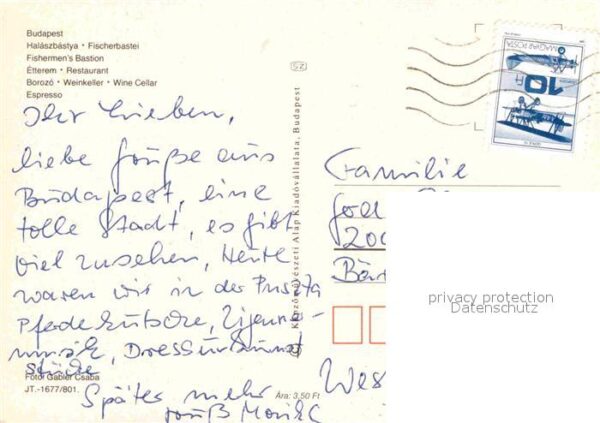 Budapest
Halászbástya • Fischerbastei
Fishermen's Bastion
Étterem • Restaurant
Borozó • Weinkeller • Wine Cellar
Espresso
Ihr Lieben,
liebe Grüße aus
Budapest, eine
tolle Stadt, es gibt
viel zu sehen, Heute
waren wir in der Puszta
Pferdekutsche, Zigeuner-
musik, Dressurkunst
stücke
Später mehr
Gruß Monika
Foto: Gabler Csaba
JT.-1677/801.
Ára: 3,50 Ft
Képzőművészeti Alap Kiadóvállalata, Budapest
MAGYAR POSTA
10 Ft
Familie
200
privacy protection
Datenschutz
Wes